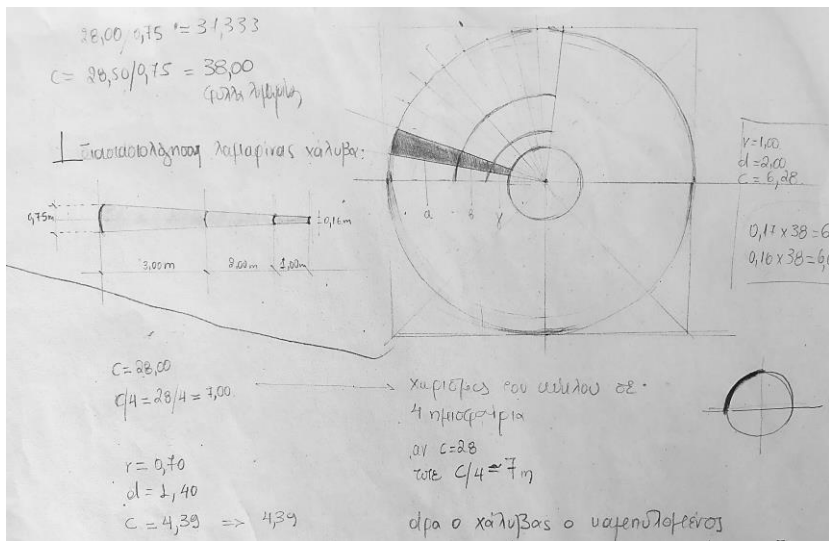 28,00/0,75 = 31,333
C = 28,50/0,75 = 38,00
φύλλα λαμαρίνας
διαστασιολόγηση λαμαρίνας χάλυβα:
0,75m
0,16m
3,00m
2,00m
1,00m
α
β
γ
r=1,00
d=2,00
C=6,28
0,17 x 38 = 6
0,16 x 38 = 6,0
C=28,00
C/4=28/4=7,00
χωρισμός του κύκλου σε
4 ημισφαίρια
αν C=28
τότε C/4 = 7m
r = 0,70
d = 1,40
C = 4,39 => 4,39
άρα ο χάλυβας ο καμπυλομένος